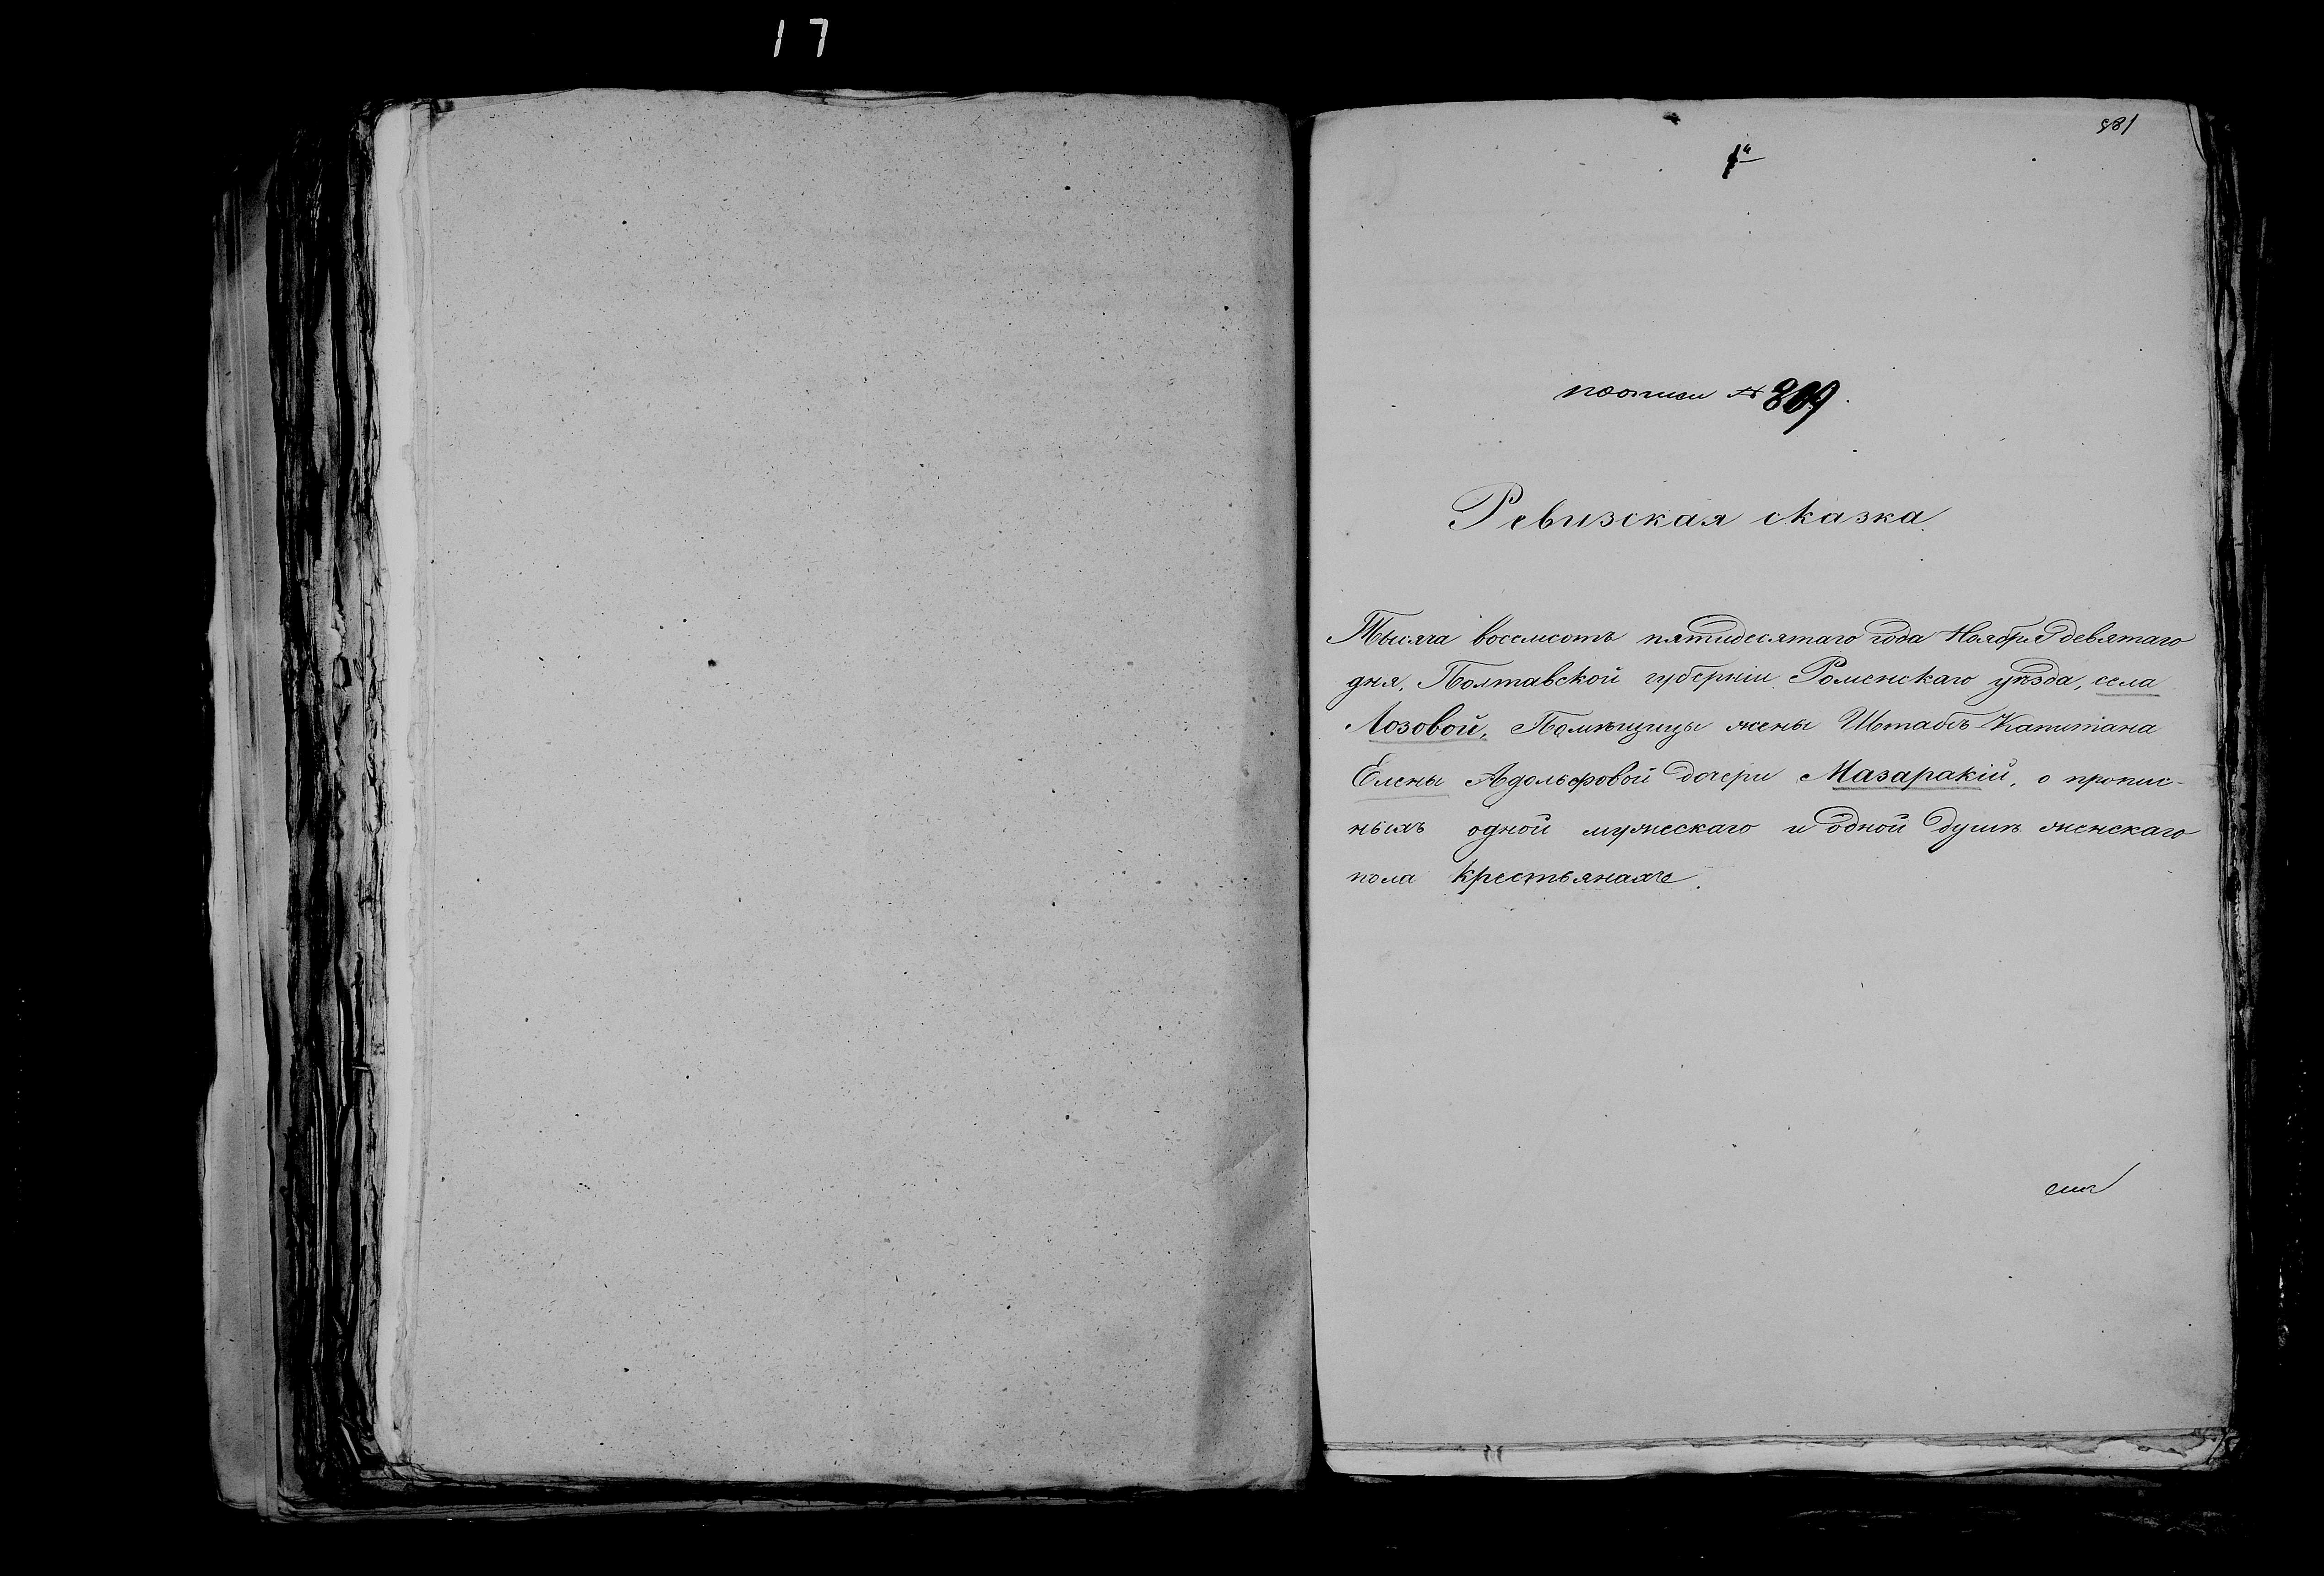 17
по описи № 309.
Ревизская сказка
Тысяча восемсотъ пятидесятаго года Ноября девятаго
дня, Полтавской губерніи Роменскаго уѣзда, села
Лозовой, Помѣщицы жены Штабсъ-Капитана
Елены Адольфовой дочери Мазаракій, о пропис-
ныхъ одной мужескаго и одной душѣ женскаго
пола крестьянахъ.